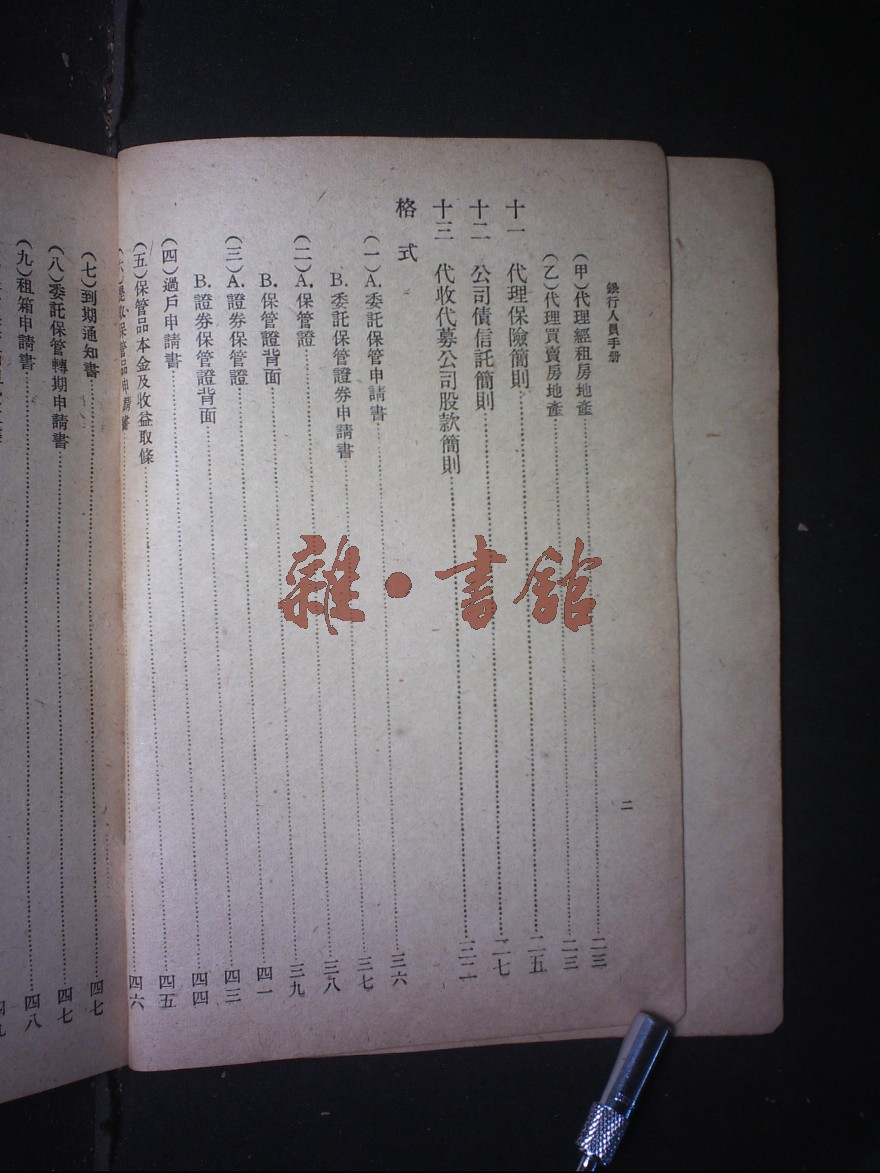 銀行人員手册
二
（甲）代理經租房地產……二三
（乙）代理買賣房地產……二三
十一 代理保險簡則……二五
十二 公司債信託簡則……二七
十三 代收代募公司股款簡則……三二
格式
（一）A.委託保管申請書……三六
B.委託保管證券申請書……三七
（二）A.保管證……三八
B.保管證背面……三九
（三）A.證券保管證……四一
B.證券保管證背面……四三
（四）過戶申請書……四四
（五）保管品本金及收益取條……四五
（六）提取保管品申請書……四六
（七）到期通知書……四七
（八）委託保管轉期申請書……四七
（九）租箱申請書……四八
雜·書館